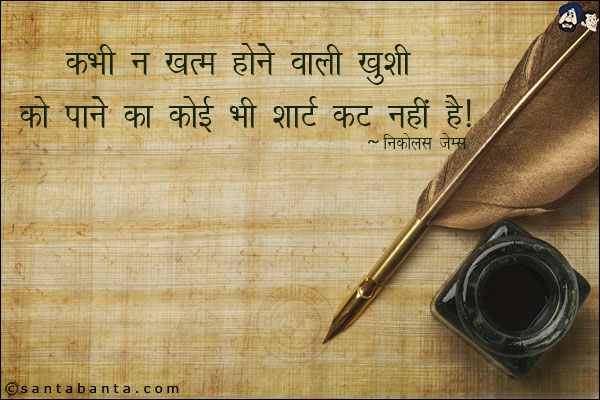 कभी न खत्म होने वाली खुशी
को पाने का कोई भी शार्ट कट नहीं है!
~ निकोलस जेम्स
©santabanta.com